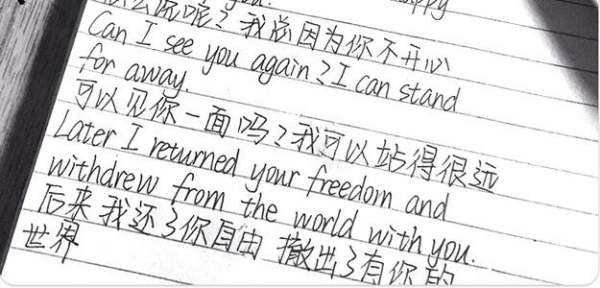 怎么说呢？我总因为你不开心
Can I see you again？I can stand
for away.
可以见你一面吗？我可以站得很远
Later I returned your freedom and
withdrew from the world with you.
后来我还了你自由 撤出了有你的
世界